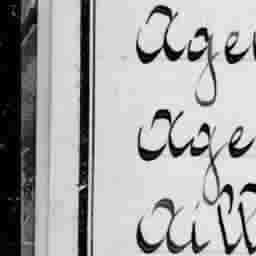 Age
Age
Aill